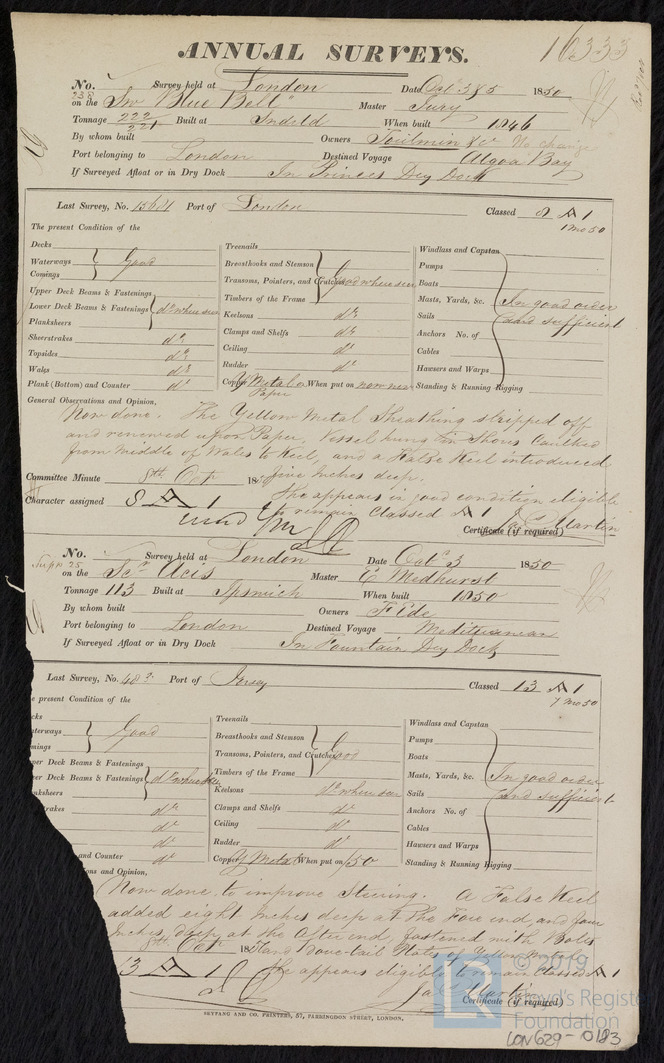 ANNUAL SURVEYS.
16333
No. 238 Survey held at London Date Oct 3 & 5 1850
on the Sw "Blue Bell" Master Jury
Tonnage 222/221 Built at When built 1846
By whom built Owners Toulmin & Co No change
Port belonging to London Destined Voyage Algoa Bay
If Surveyed Afloat or in Dry Dock In Princes Dry Dock
Last Survey, No. Port of London Classed 8 A 1
1 Mo 50
The present Condition of the
Decks
Waterways } Good
Comings
Upper Deck Beams & Fastenings
Lower Deck Beams & Fastenings } do where seen
Planksheers
Sheerstrakes do
Topsides do
Wales do
Plank (Bottom) and Counter do
Treenails
Breasthooks and Stemson
Transoms, Pointers, and Crutches Good where seen
Timbers of the Frame
Keelsons do
Clamps and Shelfs do
Ceiling do
Rudder do
Copper Y Metal on Paper When put on now new
Windlass and Capstan
Pumps
Boats
Masts, Yards, &c. In good order
Sails and sufficient
Anchors No. of
Cables
Hawsers and Warps
Standing & Running Rigging
General Observations and Opinion,
Now done. The Yellow Metal Sheathing stripped off
and renewed upon Paper, Vessel hung in Shores Caulked
from Middle of Wales to Keel, and a False Keel introduced
Committee Minute 8th Oct 18 five Inches deep.
She appears in good condition eligible
Character assigned 8 A 1 to remain Classed A 1
Jas Martin
Certificate (if required)
No. Survey held at London Date Oct 3 1850
on the Scr Acis Master C Medhurst
Tonnage 113 Built at Ipswich When built 1850
By whom built Owners F Ede
Port belonging to London Destined Voyage Mediterranean
If Surveyed Afloat or in Dry Dock In Fountain Dry Dock
Last Survey, No. 48 Port of Jersey Classed 13 A 1
7 Mo 50
e present Condition of the
cks
terways } Good
mings
per Deck Beams & Fastenings
er Deck Beams & Fastenings } do where seen
nksheers
rakes do
do
do
and Counter do
Treenails
Breasthooks and Stemson
Transoms, Pointers, and Crutches Good
Timbers of the Frame
Keelsons do where seen
Clamps and Shelfs do
Ceiling do
Rudder do
Copper Y Metal When put on /50
Windlass and Capstan
Pumps
Boats
Masts, Yards, &c. In good order
Sails and sufficient
Anchors No. of
Cables
Hawsers and Warps
Standing & Running Rigging
ons and Opinion,
Now done to improve Steering. A False Keel
added eight Inches deep at the Fore end, and four
Inches deep at the After end, fastened with Bolts
8th Oct 18 and Dove-tail Plates of Yellow Metal
13 A 1 She appears eligible to remain Classed A 1
Jas Martin
Certificate (if required)
SEYFANG AND CO. PRINTERS, 57, FARRINGDON STREET, LONDON,
© 2019
Lloyd's Registe
Foundation
LON629-0183